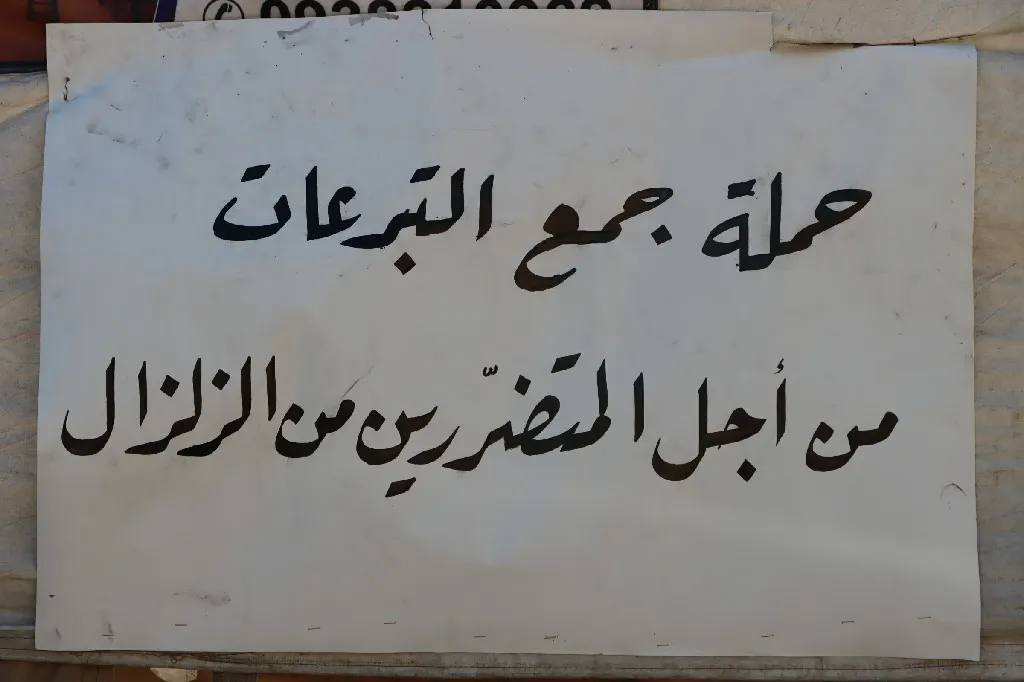 حملة جمع التبرعات
من أجل المتضرّرين من الزلزال